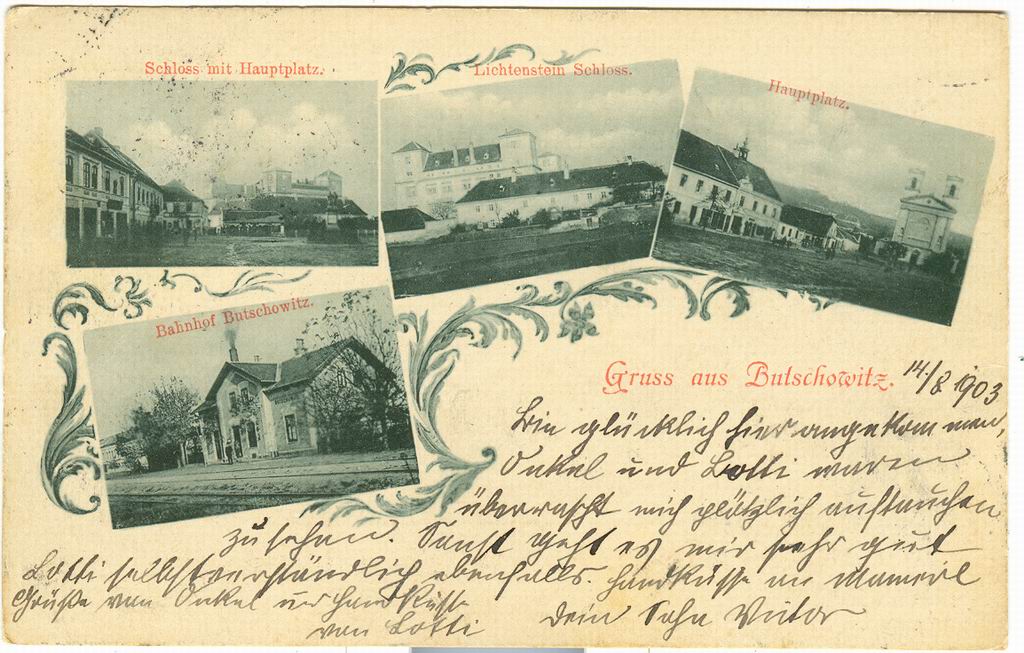 Schloss mit Hauptplatz.
Lichtenstein Schloss.
Hauptplatz.
Bahnhof Butschowitz.
Gruss aus Butschowitz.
14./8 1903
Bin glücklich hier angekommen,
Onkel und Lotti waren
überrascht mich plötzlich auftauchen
zu sehen. Sonst geht es mir sehr gut
Lotti selbstverständlich ebenfalls. Handküsse an
Grüße von Onkel und Handküsse
von Lotti
Dein Sohn Victor